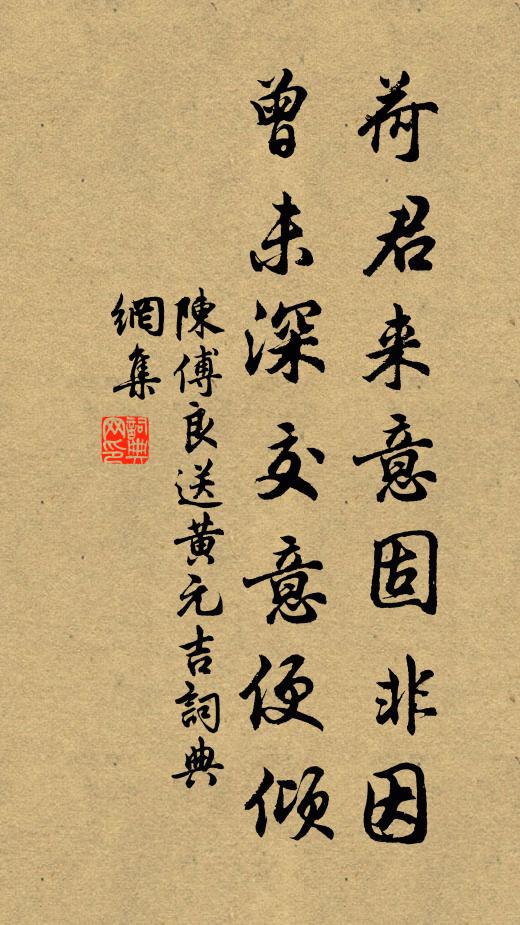 荷君来意固非因
曾未深交意便倾
陳傅良送黄元吉詞典
網集
詞典
网印